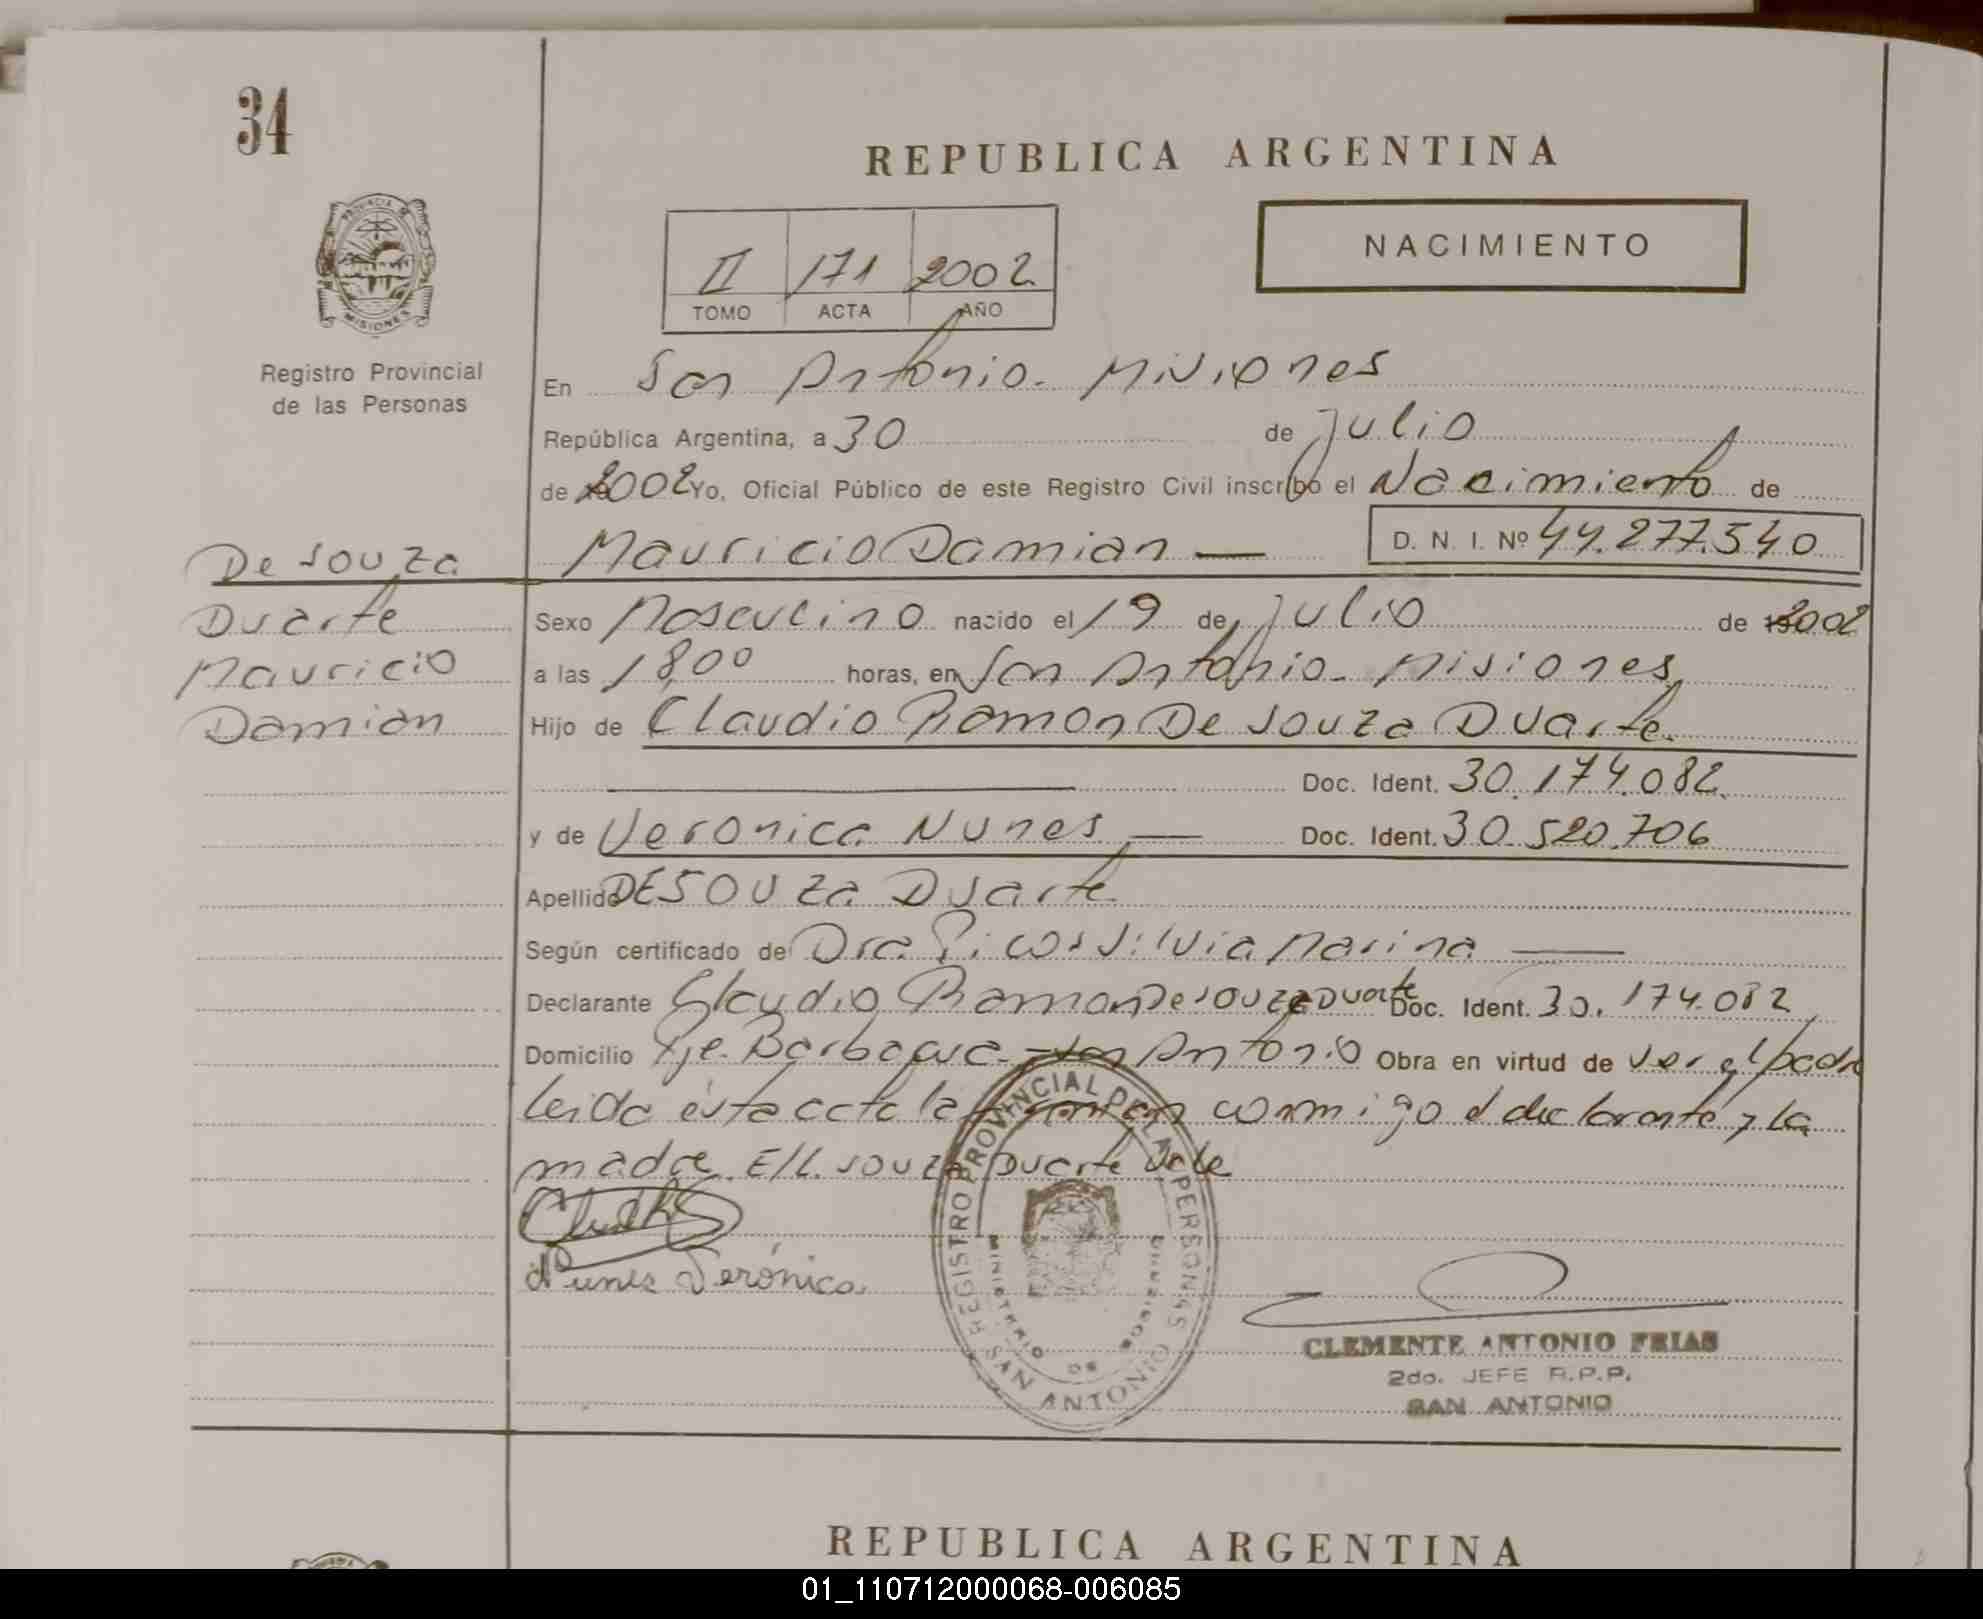 34
REPUBLICA ARGENTINA
PROVINCIA DE
MISIONES
Registro Provincial
de las Personas
II 171 2002
TOMO ACTA AÑO
NACIMIENTO
En San Antonio - Misiones
República Argentina, a 30 de Julio
de 2002 Yo, Oficial Público de este Registro Civil inscribo el Nacimiento de
De Souza Mauricio Damian — D. N. I. Nº 44.277.540
Duarte Sexo Masculino nacido el 19 de Julio de 2002
Mauricio a las 18,00 horas, en San Antonio - Misiones
Damian Hijo de Claudio Ramon De Souza Duarte.
Doc. Ident. 30.174.082.
y de Veronica Nunes — Doc. Ident. 30.520.706
Apellido DE SOUZA Duarte
Según certificado de Dra. Picos Silvia Marina —
Declarante Claudio Ramon De souza Duarte Doc. Ident. 30.174.082
Domicilio Pje. Barbagua - San Antonio Obra en virtud de ser el padre
Leida esta acta la firman conmigo el declarante y la
madre. E/L. souza Duarte Vale
Nunes Verónica.
REGISTRO PROVINCIAL DE LAS PERSONAS
MINISTERIO DE
SAN ANTONIO
CLEMENTE ANTONIO FRIAS
2do. JEFE R.P.P.
SAN ANTONIO
REPUBLICA ARGENTINA
01_110712000068-006085